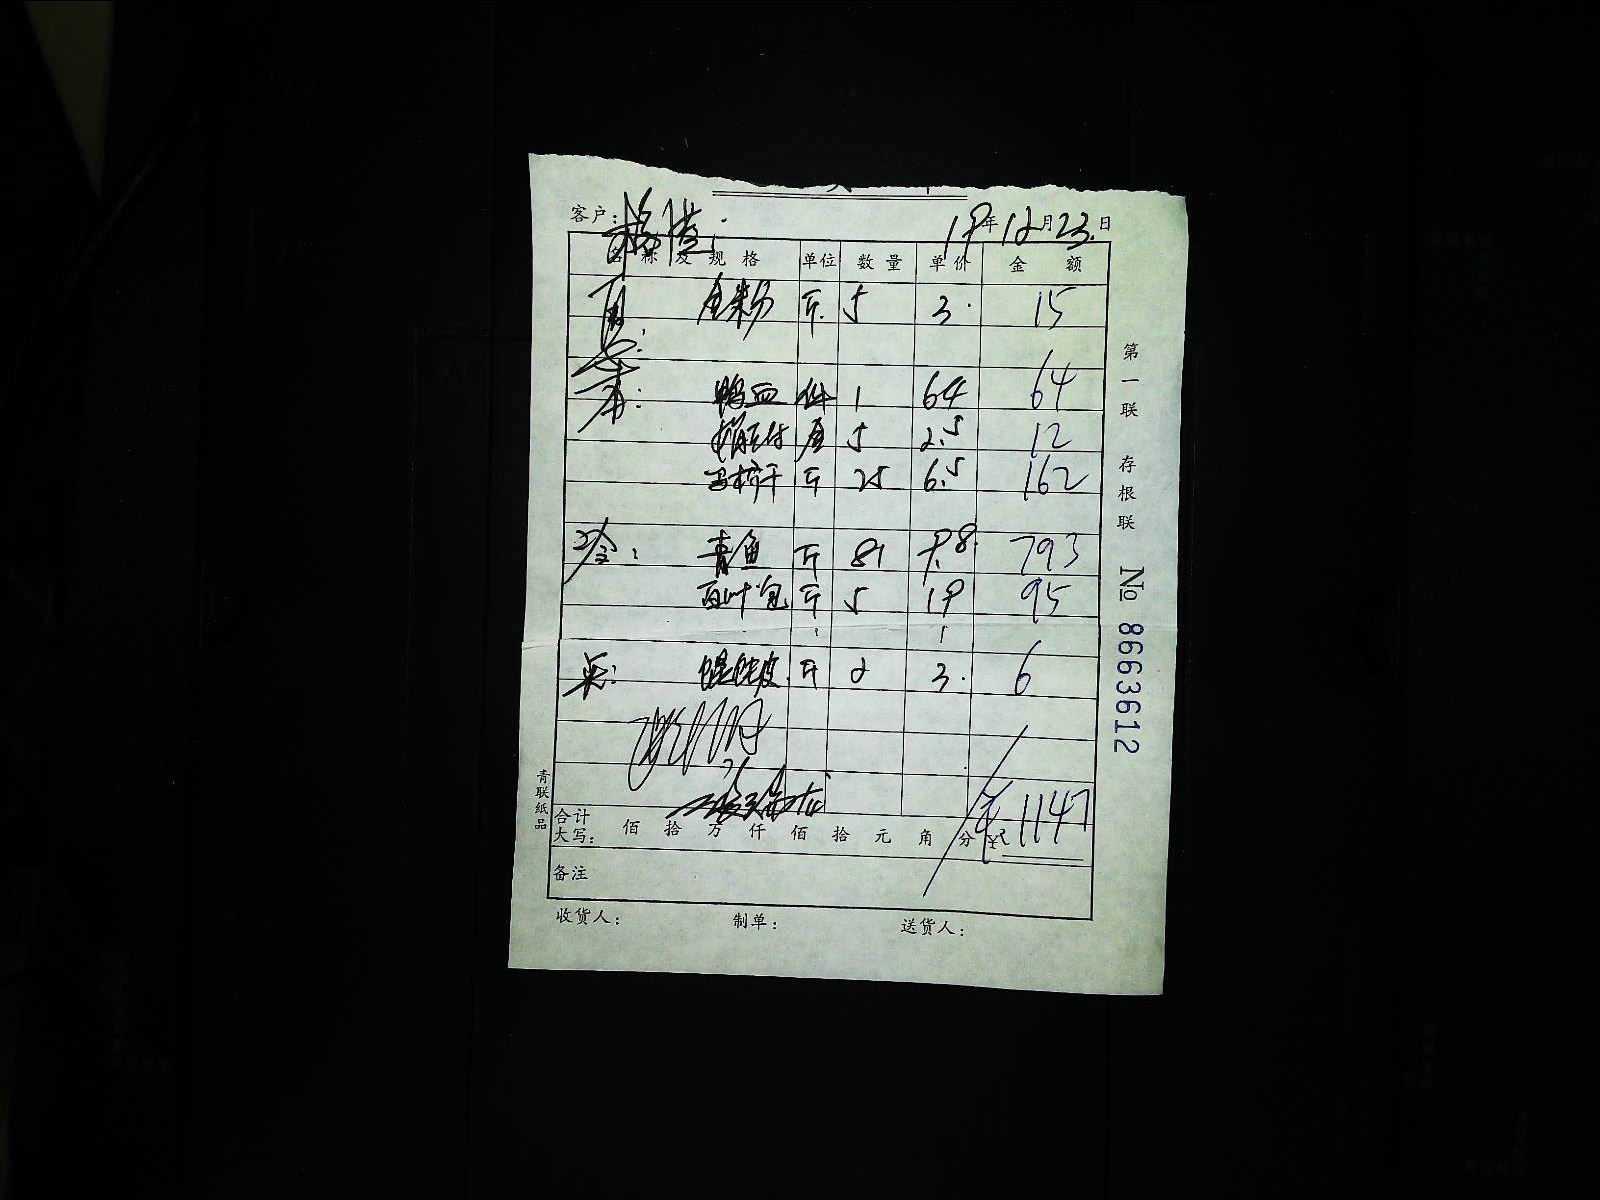 客户: 19年12月23日
名称及规格 单位 数量 单价 金额
斤 5 3 15
鸭血 件 1 64 64
5 2.5 12
斤 25 6.5 162
冷: 青鱼 斤 81 9.8 793
百叶包 斤 5 19 95
点: 馄饨皮 斤 2 3 6
合计大写: 佰 拾 万 仟 佰 拾 元 角 分 ¥ 1147
备注
收货人: 制单: 送货人:
第一联 存根联 No 8663612
青联纸品